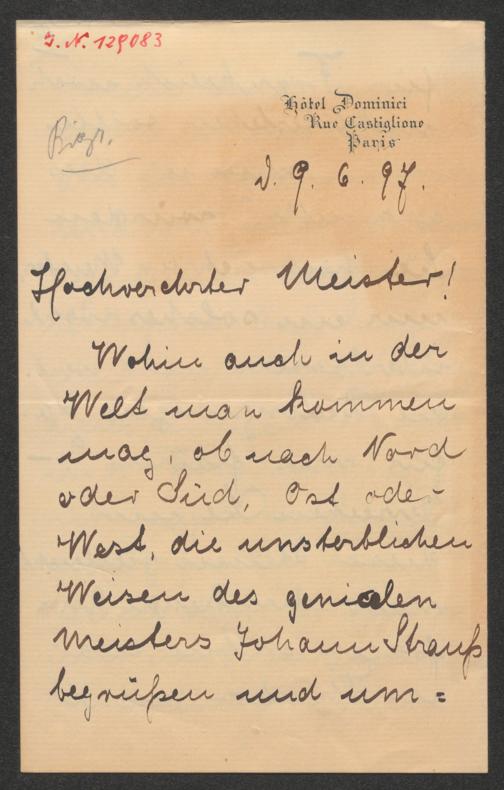 J. N. 129083
Hôtel Dominici
Rue Castiglione
Paris
Biogr.
d. 9. 6. 97.
Hochverehrter Meister!
Wohin auch in der
Welt man kommen
mag, ob nach Nord
oder Süd, Ost oder
West, die unsterblichen
Weisen des genialen
Meisters Johann Strauß
begrüßen und um=